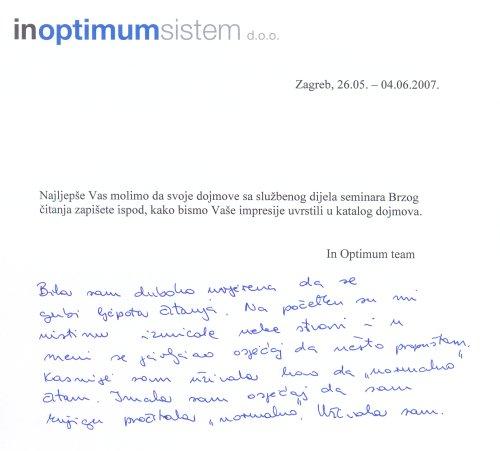 inoptimumsistem d.o.o.
Zagreb, 26.05. – 04.06.2007.
Najljepše Vas molimo da svoje dojmove sa službenog dijela seminara Brzog
čitanja zapišete ispod, kako bismo Vaše impresije uvrstili u katalog dojmova.
In Optimum team
Bila sam duboko uvjerena da se
gubi ljepota čitanja. Na početku su mi
uistinu izmicale neke stvari i u
meni se javljao osjećaj da nešto propuštam.
Kasnije sam uživala kao da „normalno“
čitam. Imala sam osjećaj da sam
knjigu pročitala „normalno“. Uživala sam.